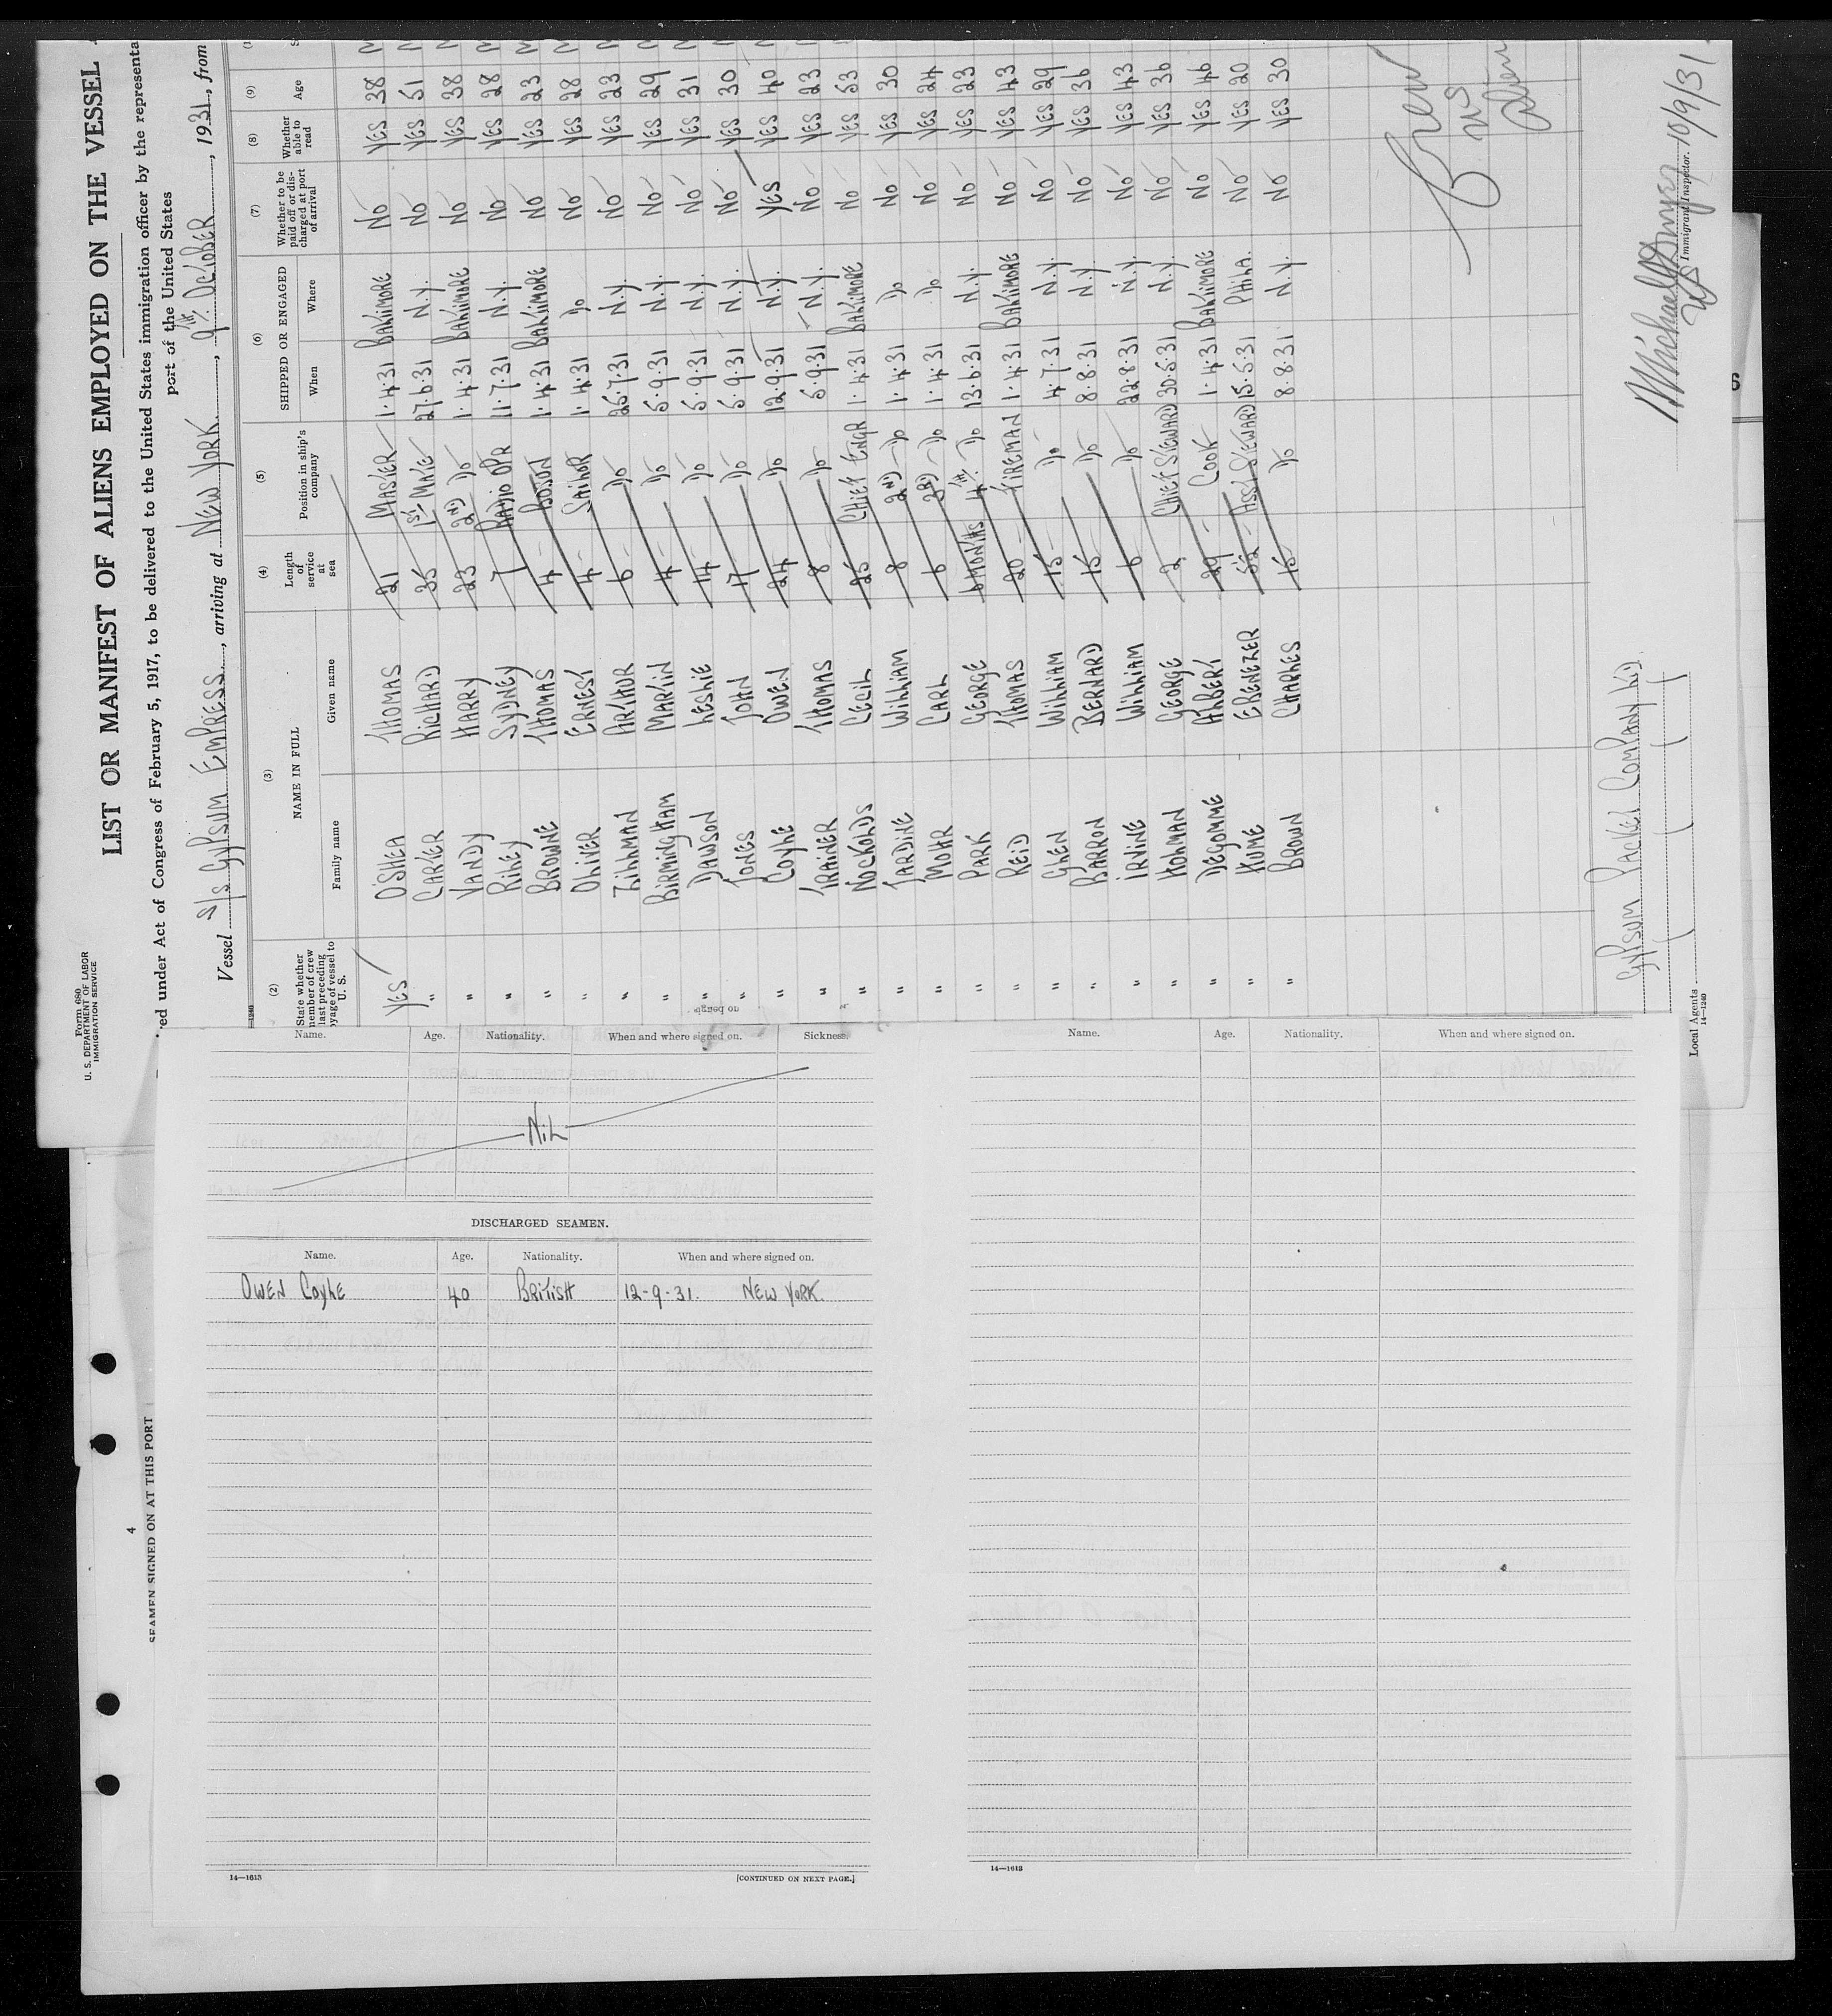 Form 680
U. S. DEPARTMENT OF LABOR
IMMIGRATION SERVICE
LIST OR MANIFEST OF ALIENS EMPLOYED ON THE VESSEL
ed under Act of Congress of February 5, 1917, to be delivered to the United States immigration officer by the representa
port of the United States
Vessel S/S GYPSUM EMPRESS, arriving at NEW YORK, 9th OCTOBER, 1931, from
(2) (3) (4) (5) (6) (7) (8) (9)
State whether member of crew last preceding voyage of vessel to U. S. NAME IN FULL Family name Given name Length of service at sea Position in ship's company SHIPPED OR ENGAGED When Where Whether to be paid off or discharged at port of arrival Whether able to read Age
YES O'SHEA THOMAS 21 MASTER 1.4.31 BALTIMORE NO YES 38
" CARTER RICHARD 35 1ST MATE 27.6.31 N.Y. NO YES 51
" VANDY HARRY 23 2ND DO 1.4.31 BALTIMORE NO YES 38
" RILEY SYDNEY 7 RADIO OPR 11.7.31 N.Y. NO YES 28
" BROWNE THOMAS 4 BOSUN 1.4.31 BALTIMORE NO YES 23
" OLIVER ERNEST 4 SAILOR 1.4.31 DO NO YES 28
" ZILLMAN ARTHUR 6 DO 25.7.31 N.Y. NO YES 23
" BIRMINGHAM MARTIN 4 DO 5.9.31 N.Y. NO YES 29
" DAWSON LESLIE 14 DO 5.9.31 N.Y. NO YES 31
" JONES JOHN 17 DO 5.9.31 N.Y. NO YES 30
" COYLE OWEN 24 DO 12.9.31 N.Y. YES YES 40
" TRAINER THOMAS 8 DO 5.9.31 N.Y. NO YES 23
" NOCKOLDS CECIL 25 CHIEF ENGR 1.4.31 BALTIMORE NO YES 53
" JARDINE WILLIAM 8 2ND DO 1.4.31 DO NO YES 30
" MOHR CARL 6 3RD DO 1.4.31 DO NO YES 24
" PARK GEORGE 6 MONTHS 4TH DO 13.6.31 N.Y. NO YES 23
" REID THOMAS 20 FIREMAN 1.4.31 BALTIMORE NO YES 43
" GLEN WILLIAM 15 DO 4.7.31 N.Y. NO YES 29
" BARRON BERNARD 15 DO 8.8.31 N.Y. NO YES 36
" IRVINE WILLIAM 6 DO 22.8.31 N.Y. NO YES 43
" HOLMAN GEORGE 2 CHIEF STEWARD 30.5.31 N.Y. NO YES 36
" DEGOMME ALBERT 29 COOK 1.4.31 BALTIMORE NO YES 46
" HUME EBENEZER 5½ ASST STEWARD 15.5.31 PHILA. NO YES 20
" BROWN CHARLES 15 DO 8.8.31 N.Y. NO YES 30
Crew
US
alien
GYPSUM PACKET COMPANY LTD.
Local Agents
14—1240
10/9/31
Immigrant Inspector.
4
SEAMEN SIGNED ON AT THIS PORT
Name. Age. Nationality. When and where signed on. Sickness.
NIL
DISCHARGED SEAMEN.
Name. Age. Nationality. When and where signed on.
OWEN COYLE 40 BRITISH 12-9-31. NEW YORK.
14—1613
[CONTINUED ON NEXT PAGE.]
Name. Age. Nationality. When and where signed on.
14—1613